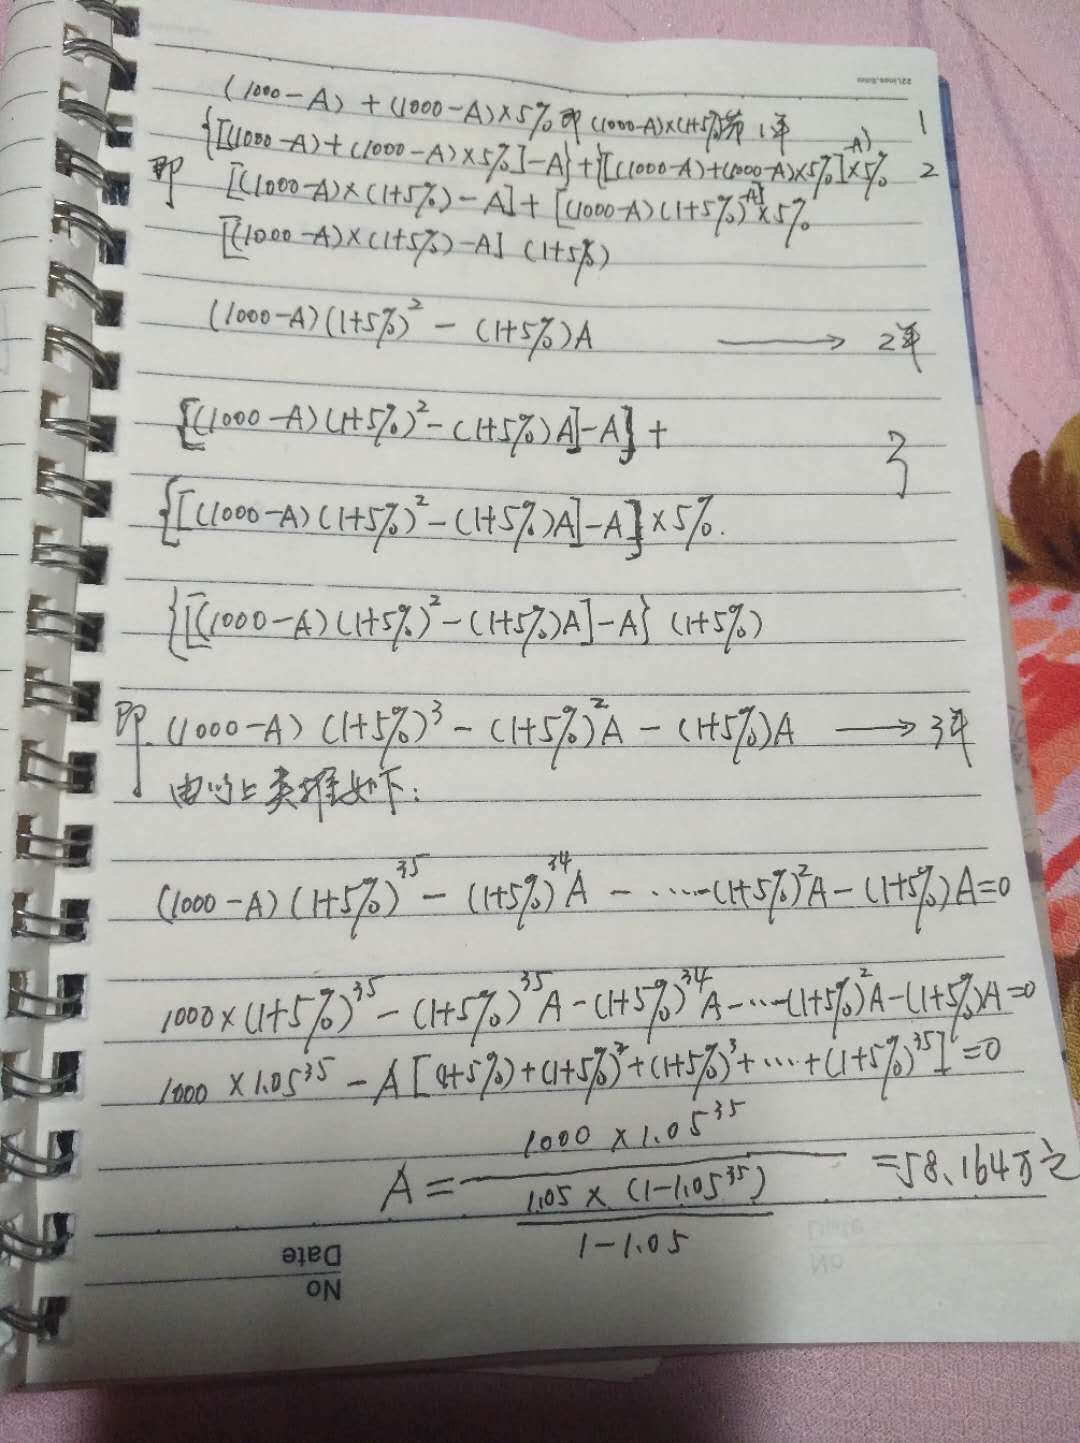 (1000-A)+(1000-A)×5% 即 (1000-A)×(1+5%)第1年 1
{[(1000-A)+(1000-A)×5%]-A}+{[(1000-A)+(1000-A)×5%]-A}×5% 2
即 [(1000-A)×(1+5%)-A]+[(1000-A)(1+5%)-A]×5%
[(1000-A)×(1+5%)-A](1+5%)
(1000-A)(1+5%)²-(1+5%)A → 2年
{[(1000-A)(1+5%)²-(1+5%)A]-A}+ 3
{[(1000-A)(1+5%)²-(1+5%)A]-A}×5%.
{[(1000-A)(1+5%)²-(1+5%)A]-A}(1+5%)
即.(1000-A)(1+5%)³-(1+5%)²A-(1+5%)A → 3年
由以上类推如下:
(1000-A)(1+5%)³⁵-(1+5%)³⁴A-……-(1+5%)²A-(1+5%)A=0
1000×(1+5%)³⁵-(1+5%)³⁵A-(1+5%)³⁴A-…-(1+5%)²A-(1+5%)A=0
1000×1.05³⁵-A[(1+5%)+(1+5%)²+(1+5%)³+…+(1+5%)³⁵]=0
1000×1.05³⁵
A= =58.164万元
1.05×(1-1.05³⁵)
1-1.05
Date
No